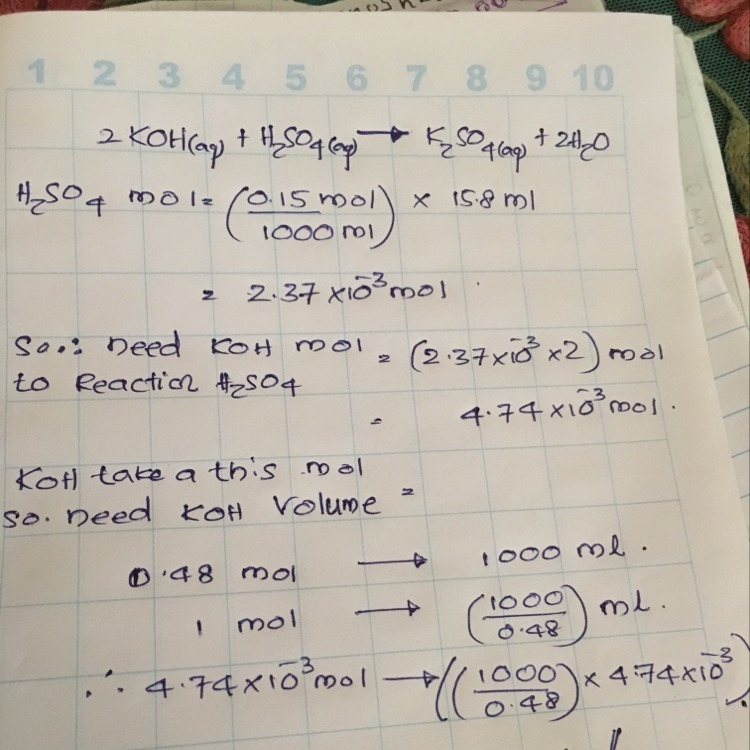 1 2 3 4 5 6 7 8 9 10
2KOH(aq) + H₂SO₄(aq) → K₂SO₄(aq) + 2H₂O
H₂SO₄ mol = (0.15 mol / 1000 ml) × 15.8 ml
= 2.37 × 10⁻³ mol
So.: need KOH mol = (2.37 × 10⁻³ × 2) mol
to Reaction H₂SO₄
= 4.74 × 10⁻³ mol.
KOH take a this mol
so. need KOH Volume =
0.48 mol → 1000 ml.
1 mol → (1000 / 0.48) ml.
∴ 4.74 × 10⁻³ mol → ((1000 / 0.48) × 4.74 × 10⁻³)